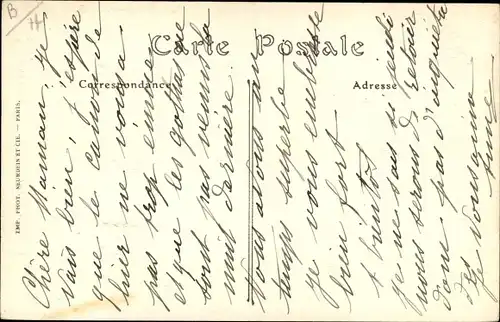 B
H
Carte Postale
Correspondance
Adresse
IMP. PHOT. NEURDEIN ET CIE. — PARIS.
Chère Maman. Je
vais bien. J'espère
que le canon de
hier ne vous a
pas trop émue
et que les gothas ne
sont pas venus la
nuit dernière.
Nous avons un
temps superbe
Je vous embrasse
bien fort
à bientôt
je ne sais si jeudi
nous serons de retour
donc pas d'inquiétu
des
Je vous aime